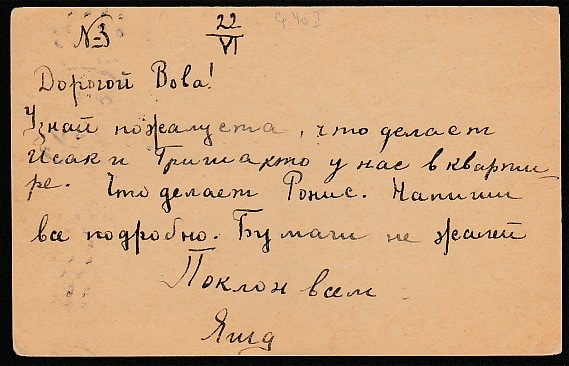 №3 22/VI
Дорогой Вова!
Узнай пожалуста, что делает
Исак и Гриша кто у нас в кварти-
ре. Что делает Ронис. Напиши
все подробно. Бумаги не жалей
Поклон всем
Яша